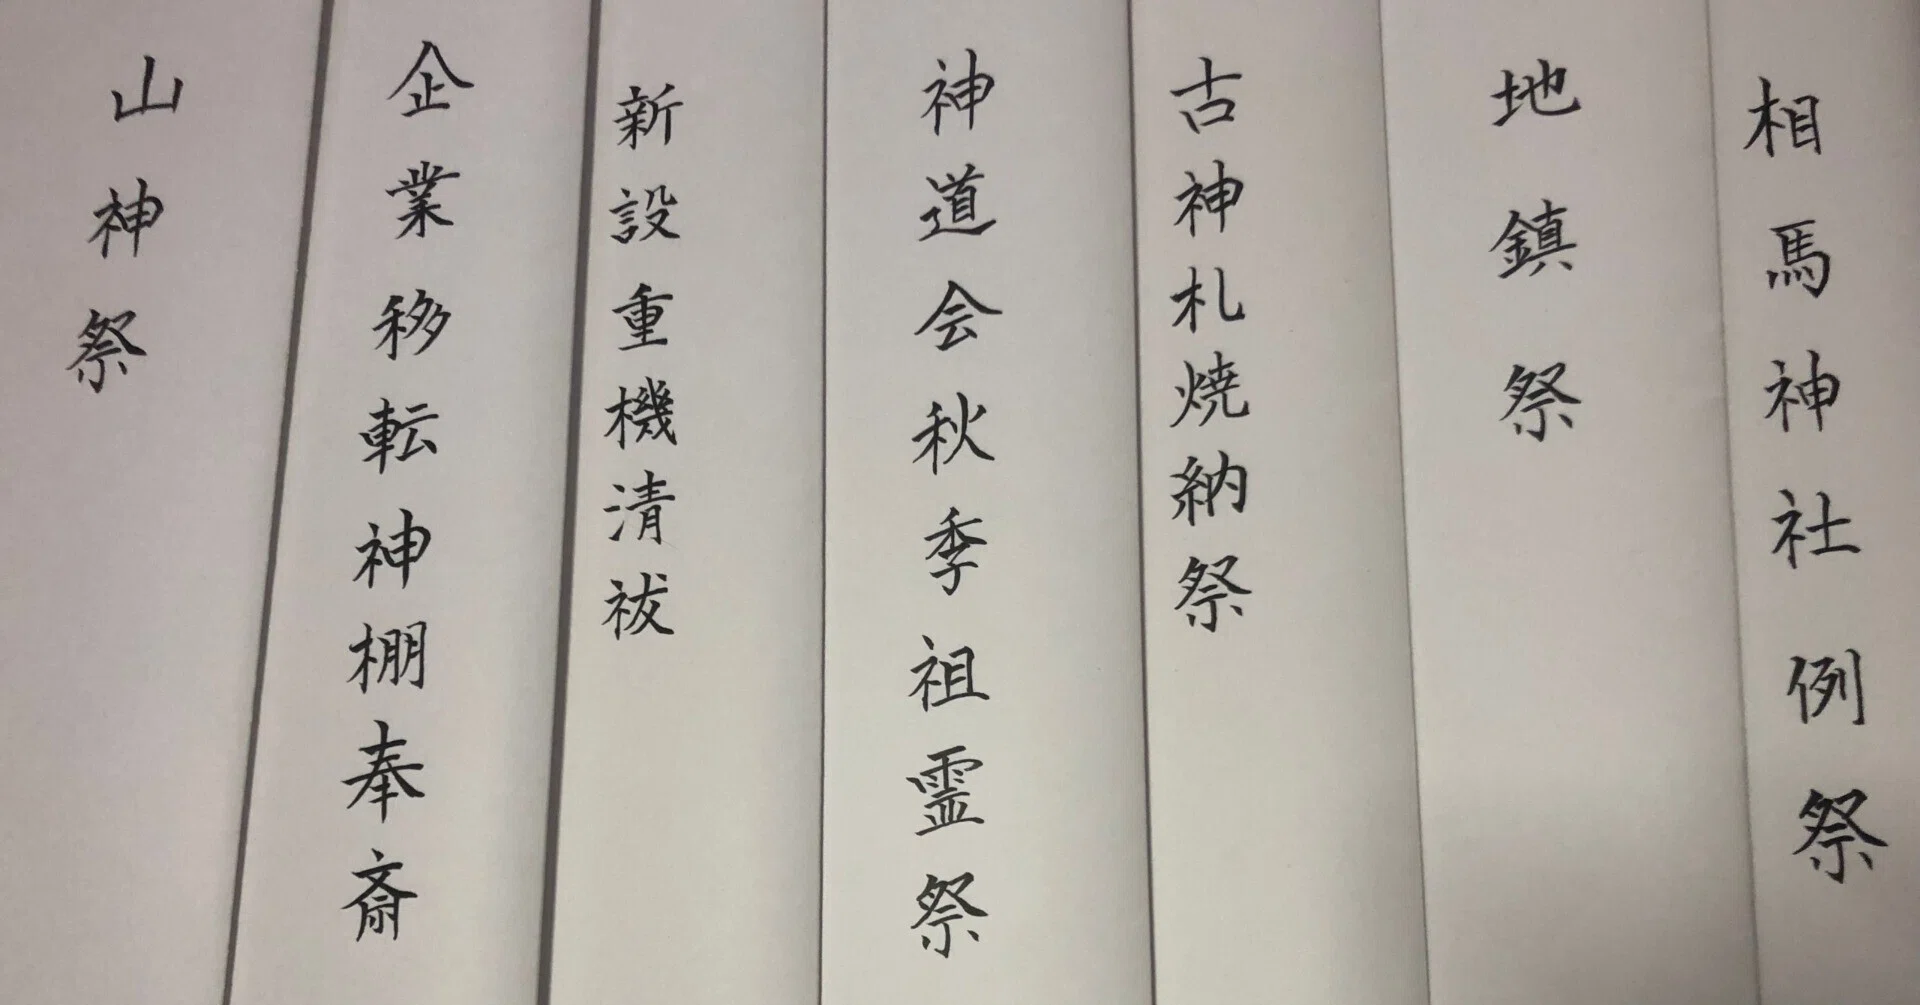 相馬神社例祭
地鎮祭
古神札焼納祭
神道会秋季祖霊祭
新設重機清祓
企業移転神棚奉斎
山神祭